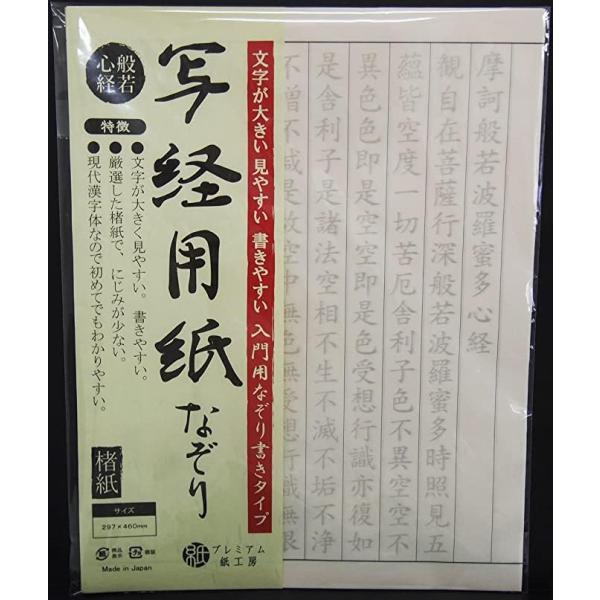 摩訶般若波羅蜜多心経
観自在菩薩行深般若波羅蜜多時照見五
蘊皆空度一切苦厄舎利子色不異空空不
異色色即是空空即是色受想行識亦復如
是舎利子是諸法空相不生不滅不垢不浄
不増不減是故空中無色無受想行識無眼
文字が大きい 見やすい 書きやすい 入門用なぞり書きタイプ
写経用紙なぞり
般若
心経
特徴
●文字が大きく見やすい。書きやすい。
●厳選した楮紙で、にじみが少ない。
●現代漢字体なので初めてでもわかりやすい。
楮紙
サイズ
297×460mm
Made in Japan
紙 プレミアム
紙工房